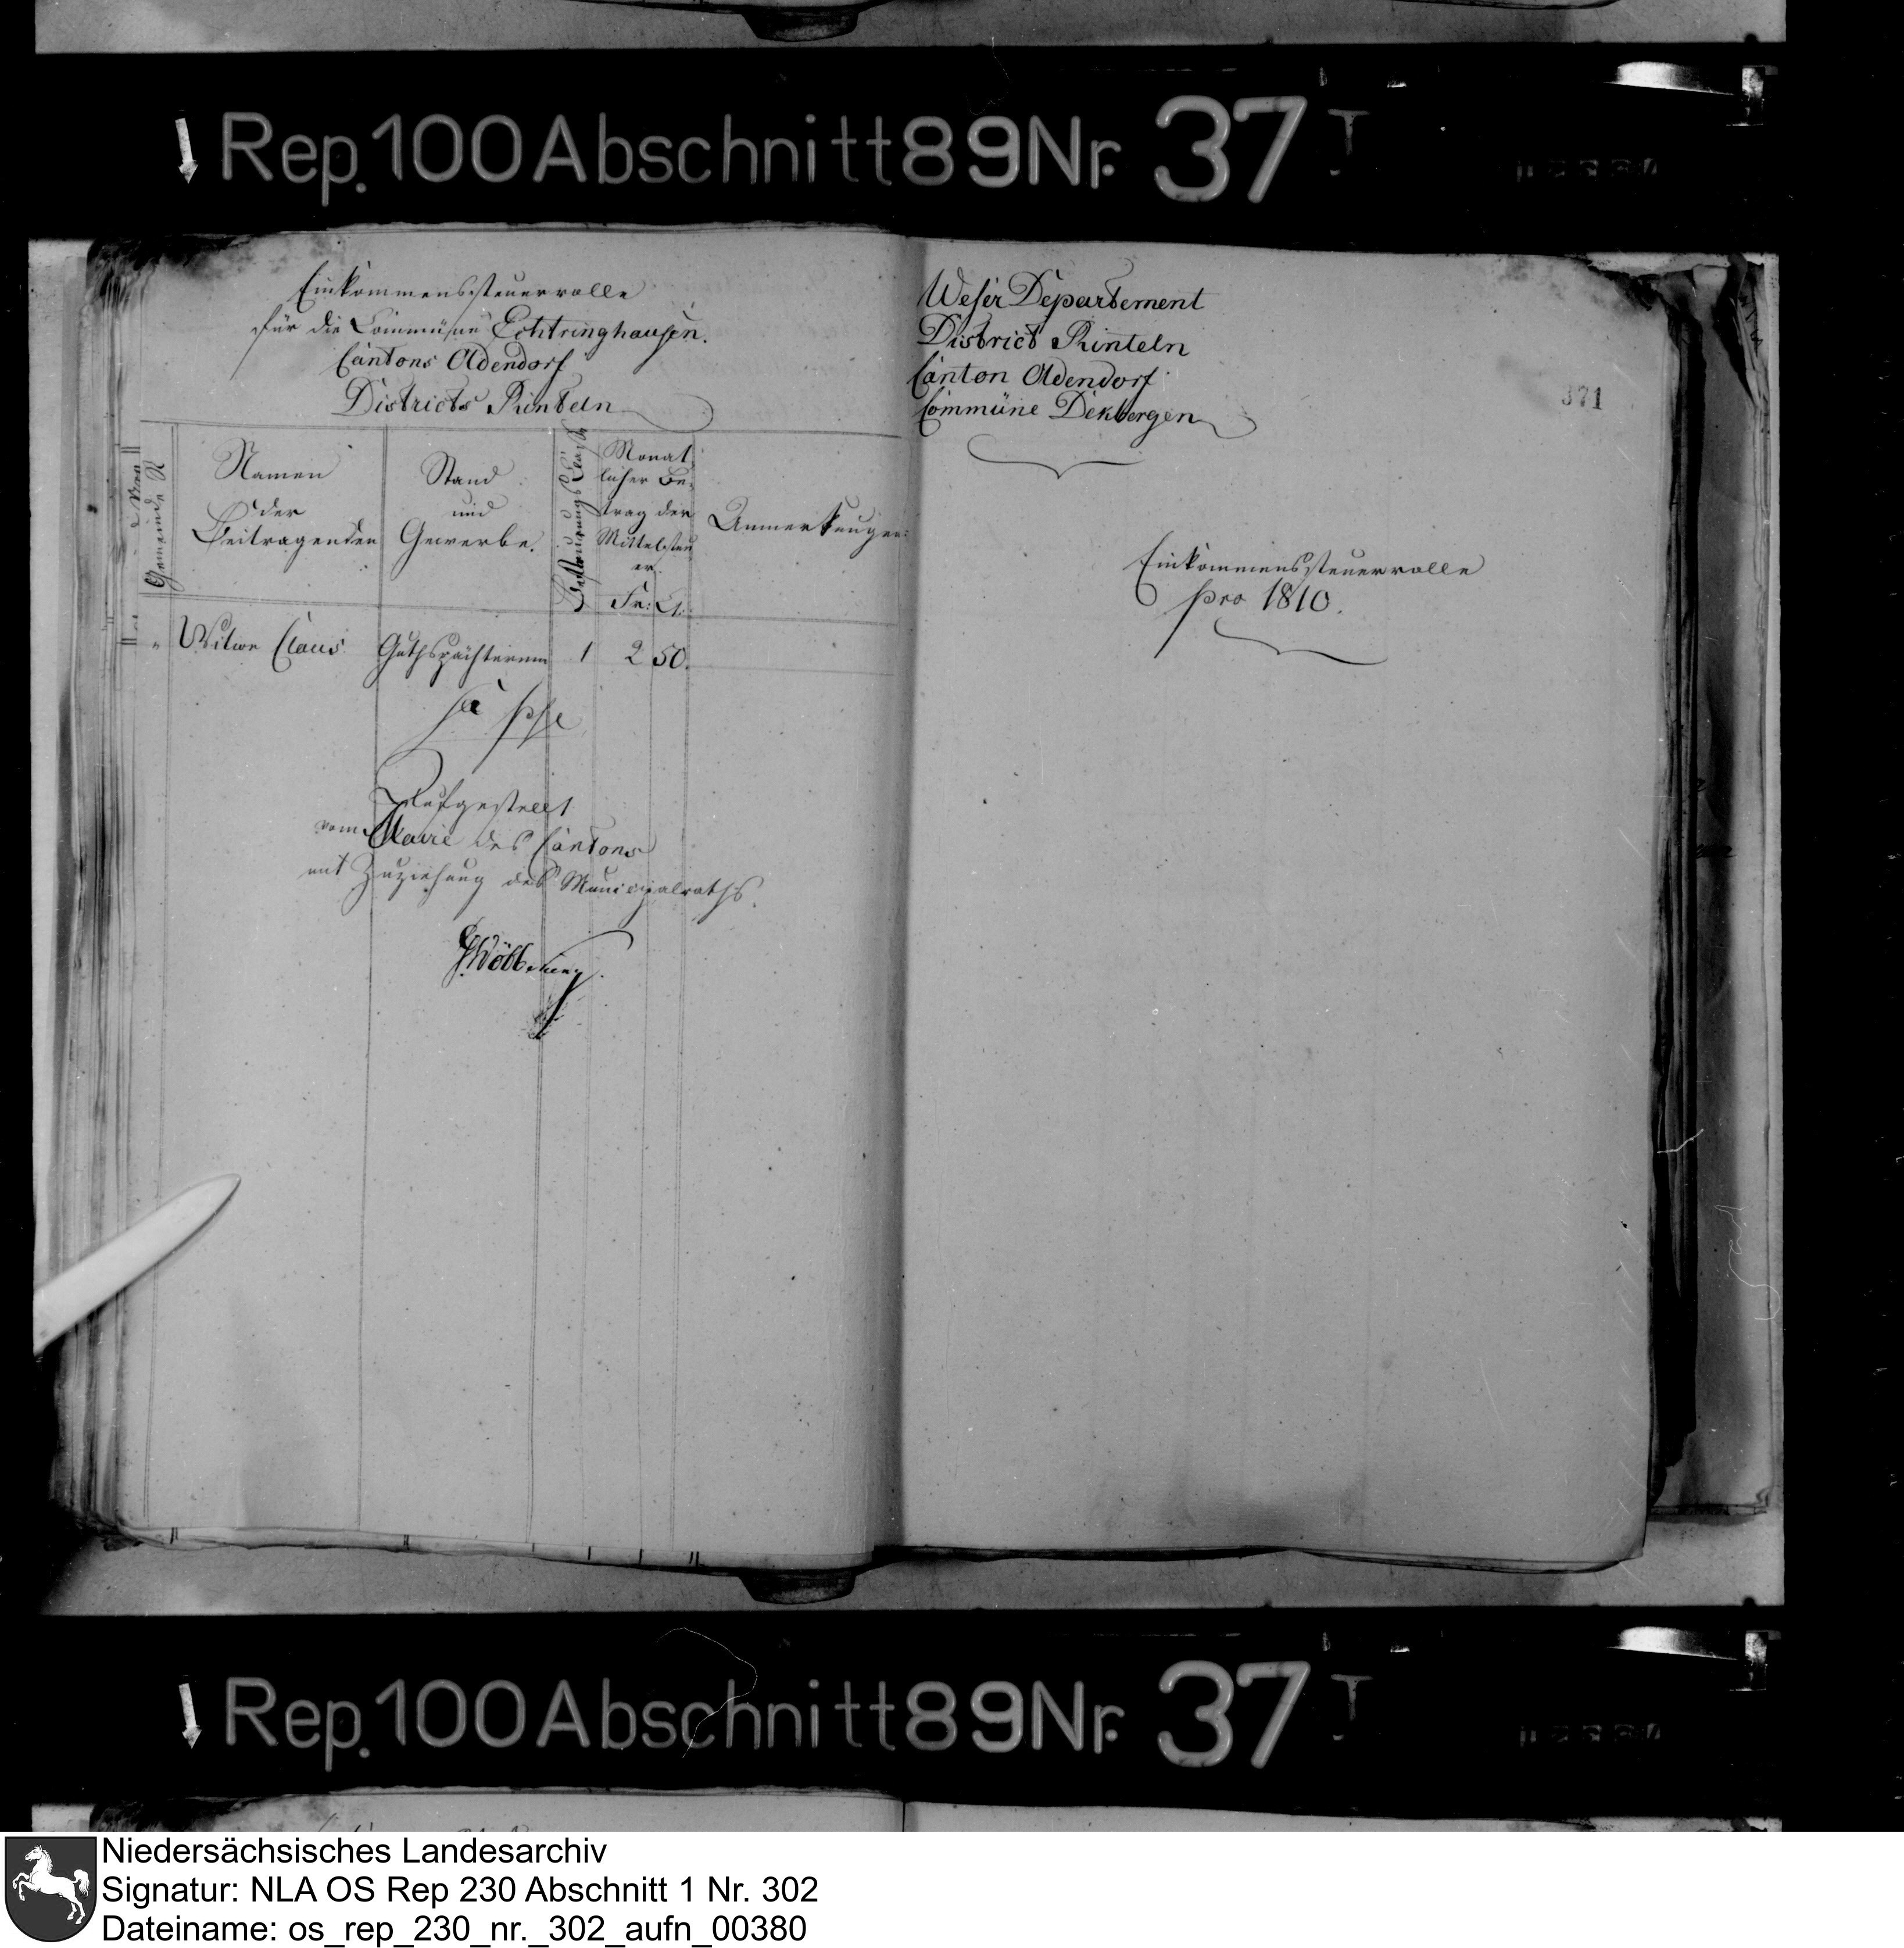 Rep. 100 Abschnitt 89 Nr. 37
Einkommenssteuerrolle
für die Commüne Echtringhausen.
Cantons Oldendorf
Districts Rinteln
Gemeinde N
Namen
der
Beitragenden
Stand
und
Gewerbe.
Besteuerungs Classe
Monat
licher Be-
trag der
Mittelsteu
er.
Fr: Ct:
Anmerkungen
" Witwe Claus Guthspächterinn 1 2 50.
pro se
Aufgestellt
vom Maire des Cantons
mit Zuziehung des Municipalraths.
Weser Departement
District Rinteln
Canton Oldendorf
Commüne Dekbergen
371
Einkommenssteuerrolle
pro 1810.
Rep. 100 Abschnitt 89 Nr. 37
Niedersächsisches Landesarchiv
Signatur: NLA OS Rep 230 Abschnitt 1 Nr. 302
Dateiname: os_rep_230_nr._302_aufn_00380